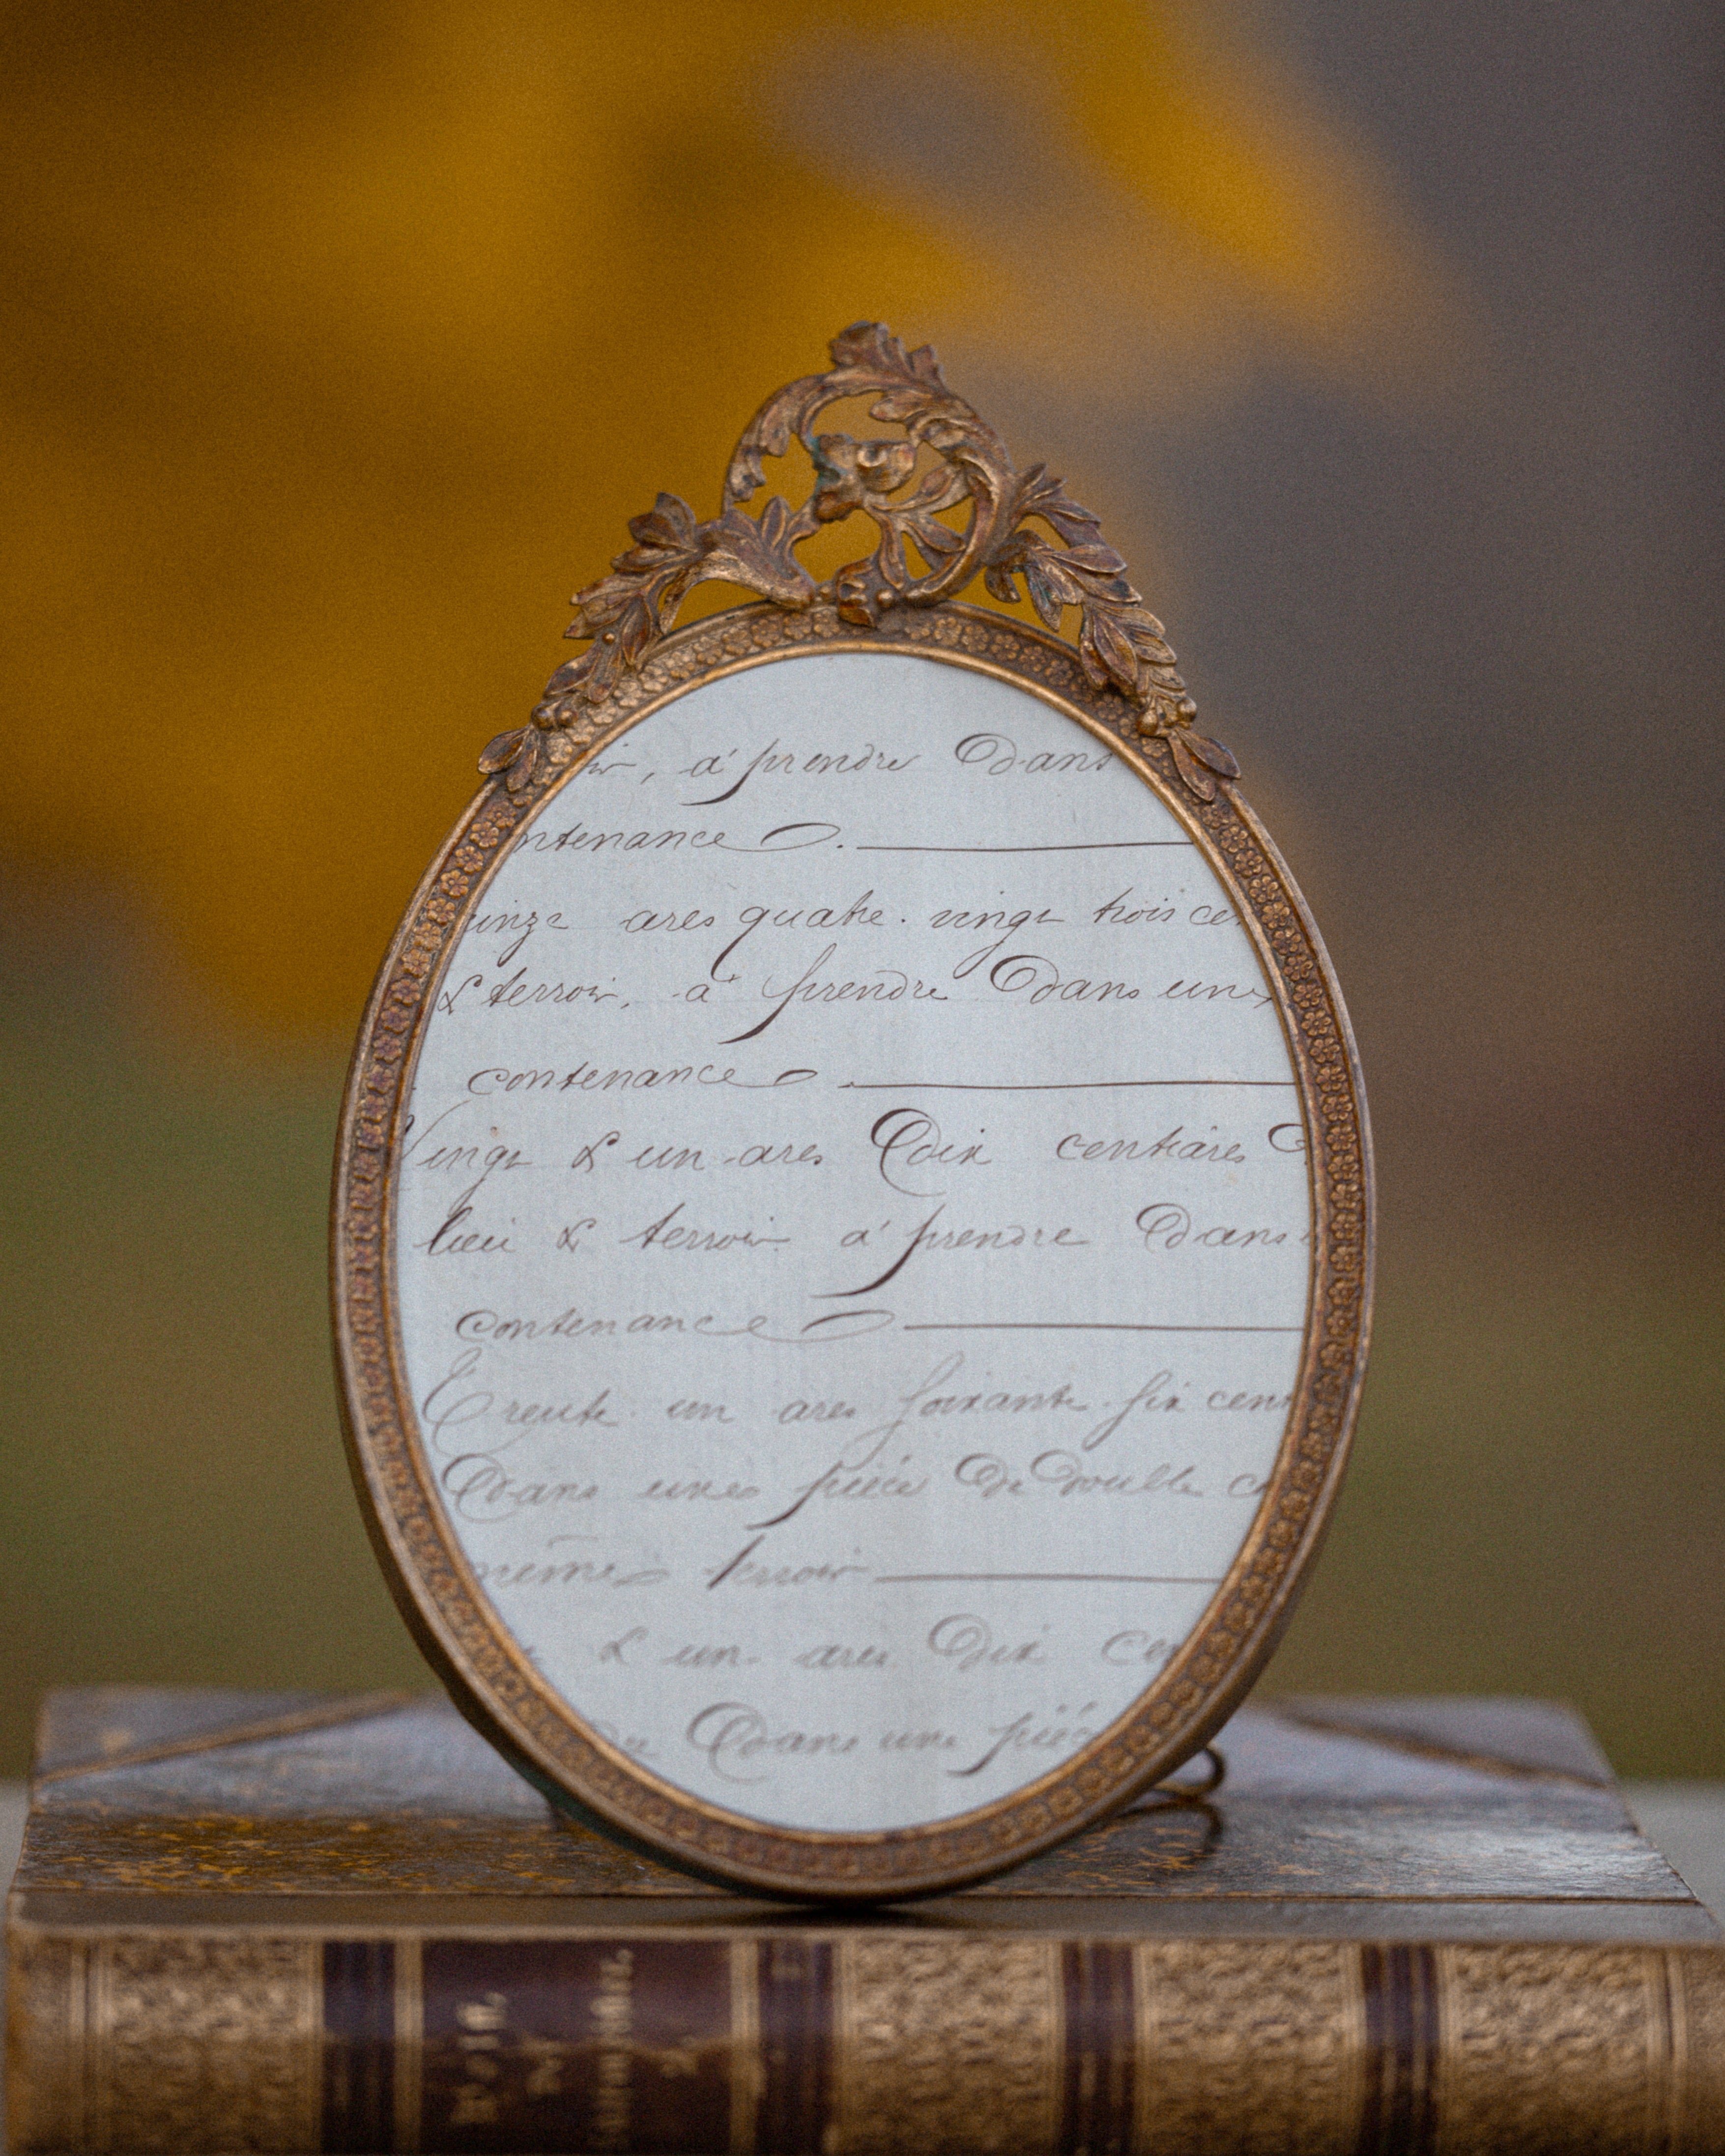 à prendre Dans
ntenance
inze ares quatre. vingt trois ce
& terroir, à prendre Dans une
contenance
Vingt & un ares Dix centiares
lieu & terroir à prendre Dans
contenance
Trente un ares Soixante Six cent
Dans une pièce De Double
même terroir
& un ares Dix Ce
Dans une pièc